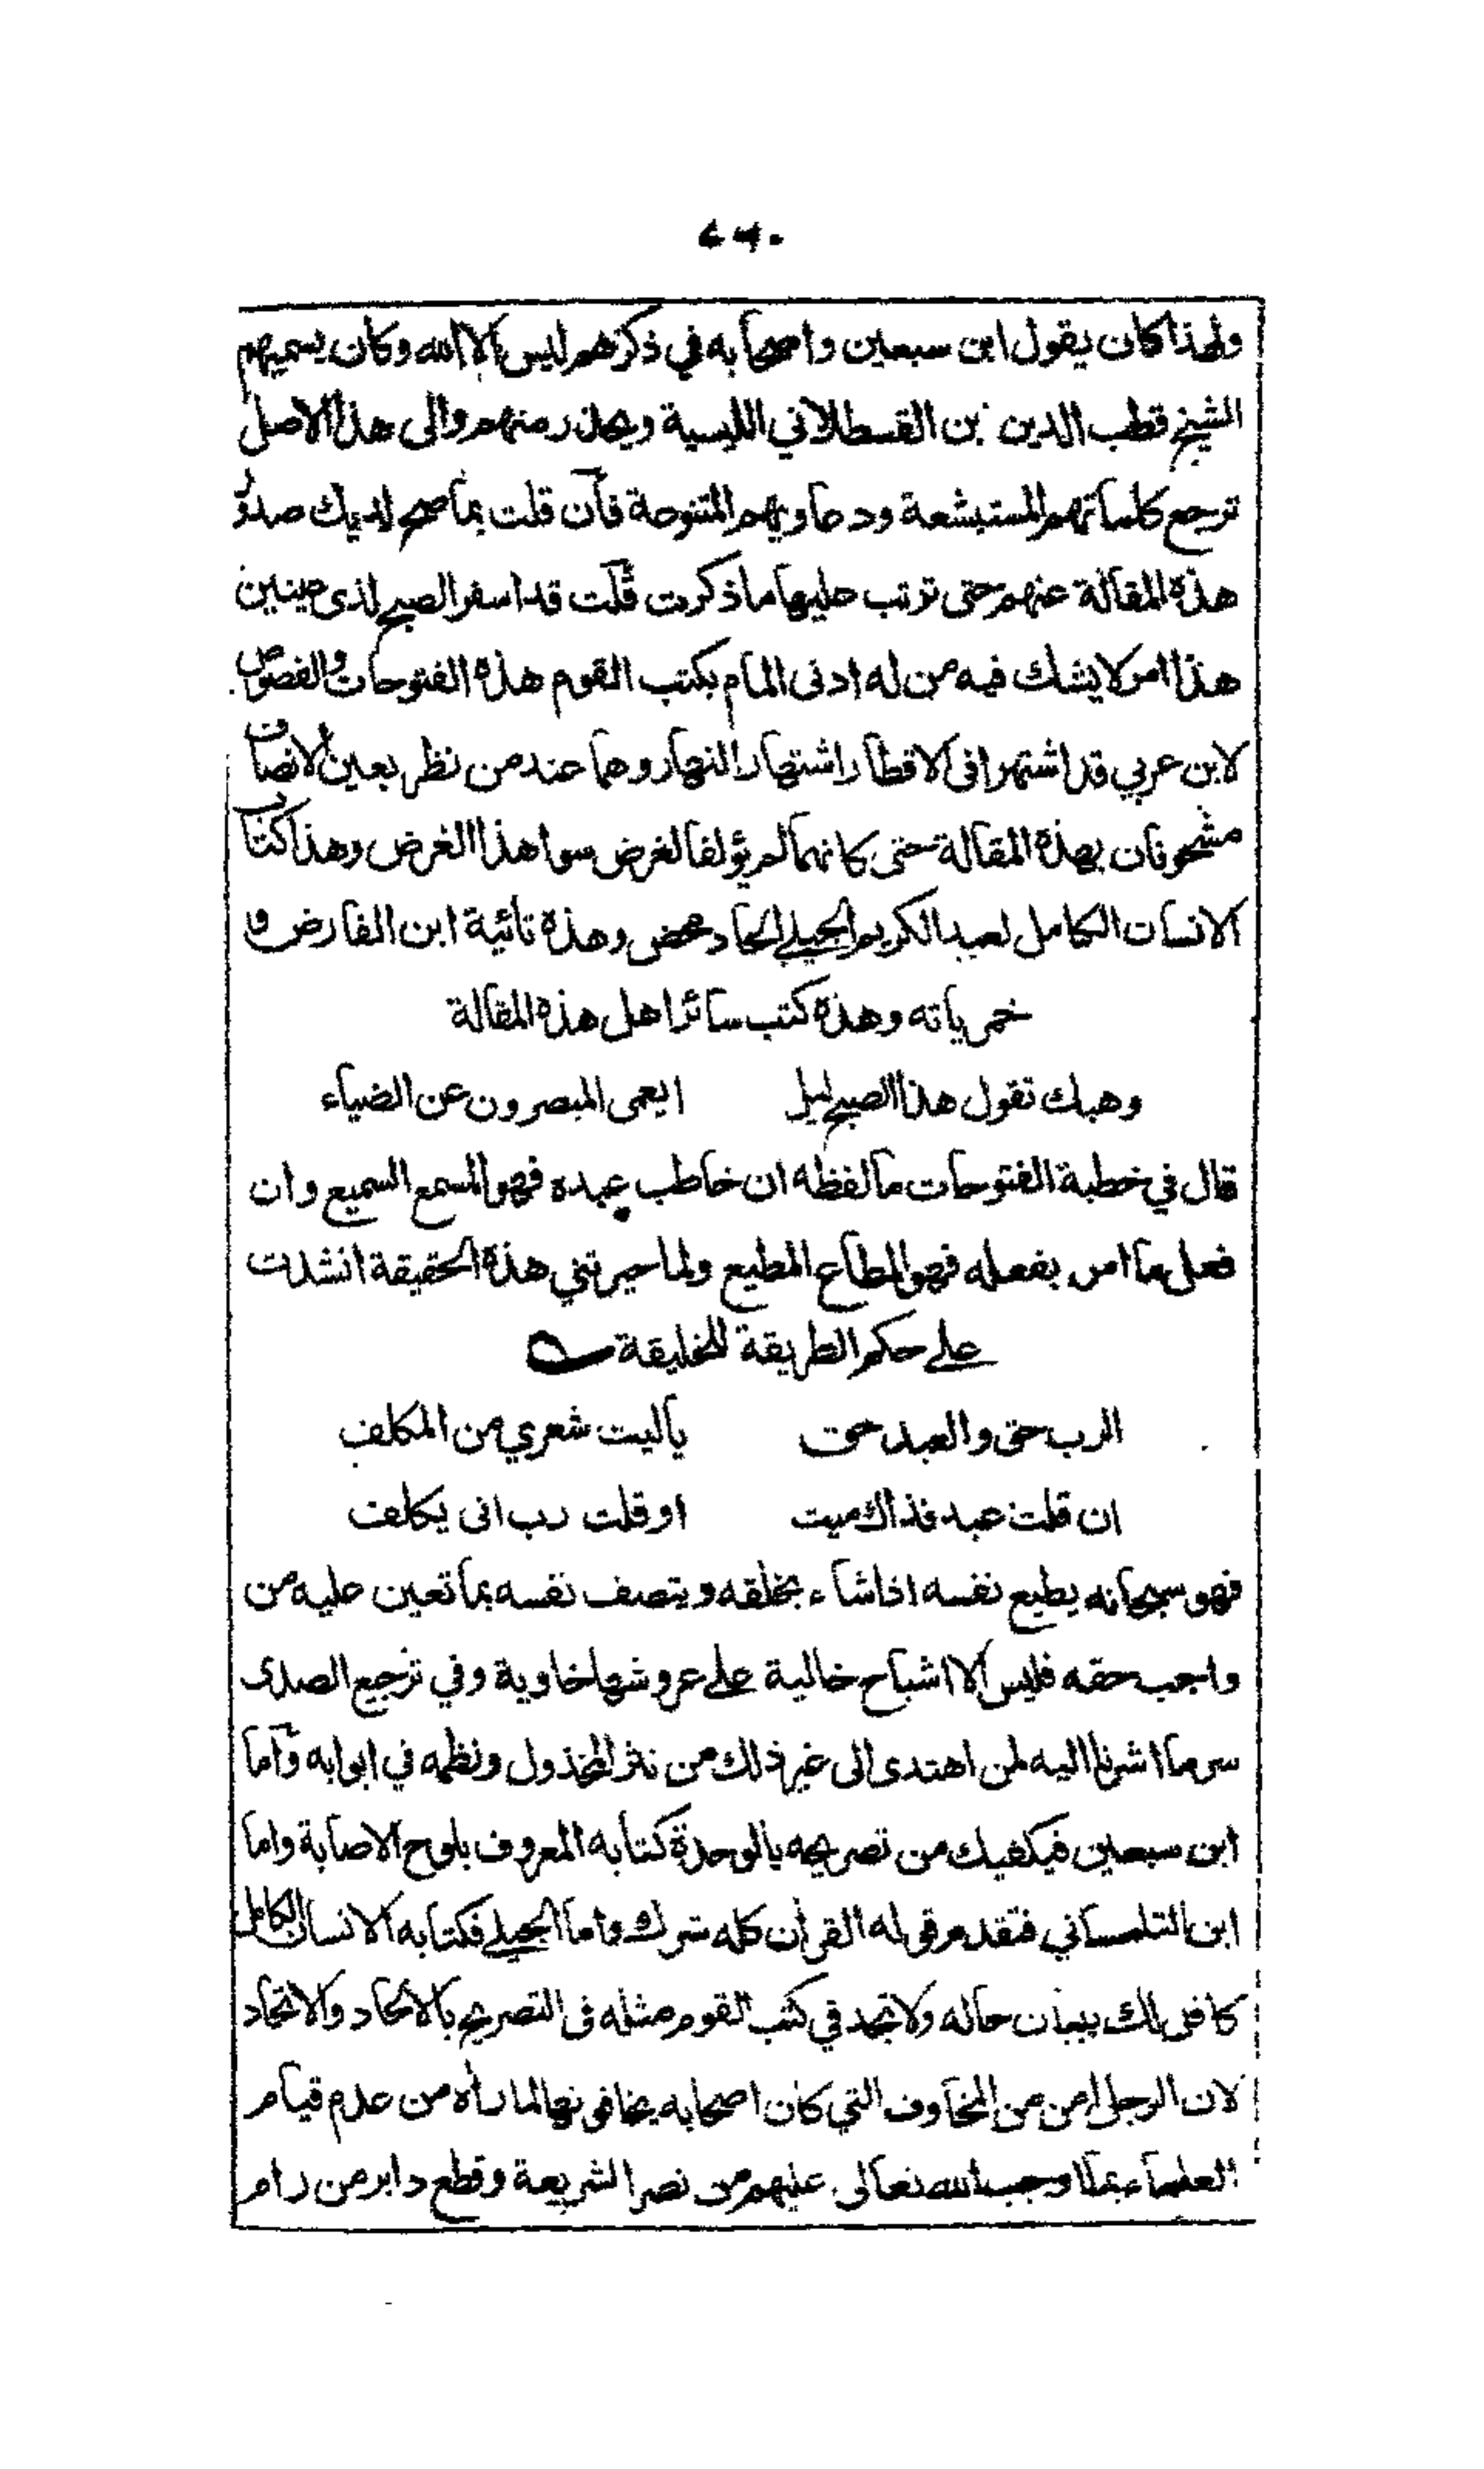 ٤٦٠
ولهذا كان يقول ابن سبعين واصحابه في ذكرهم ليس الا الله وكان يسميهم
الشيخ قطب الدين بن القسطلاني الليسية ويحذر منهم والى هذا الاصل
ترجع كلماتهم المستبشعة ودعاويهم المتنوعة فان قلت بما صح لديك صدور
هذه المقالة عنهم حتى ترتب عليها ما ذكرت قلت قد اسفر الصبح لذى عينين
هذا امر لا يشك فيه من له ادنى المام بكتب القوم هذه الفتوحات والفصوص
لابن عربي قد اشتهرا فى الاقطار اشتهار النهار وهما عند من نظر بعين الانصاف
مشحونان بهذه المقالة حتى كانهما لم يؤلفا لغرض سوا هذا الغرض وهذا كتاب
الانسان الكامل لعبد الكريم الجيلي الحاد محض وهذه تائية ابن الفارض و
خمرياته وهذه كتب سائر اهل هذه المقالة
وهبك تقول هذا الصبح ليل ايعمى المبصرون عن الضياء
قال في خطبة الفتوحات ما لفظه ان خاطب عبده فهو المسمع السميع وان
فعل ما امر بفعله فهو المطاع المطيع ولما حيرتني هذه الحقيقة انشدت
على حكم الطريقة للخليقة
الرب حق والعبد حق ياليت شعري من المكلف
ان قلت عبد فذاك ميت او قلت رب انى يكلف
فهو سبحانه يطيع نفسه اذا شاء بخلقه ويتصف نفسه بما تعين عليه من
واجب حقه فليس الا اشباح خالية على عروشها خاوية وفي ترجيع الصدى
سر ما اشرنا اليه لمن اهتدى الى غير ذلك من نثر المخذول ونظمه في ابوابه واما
ابن سبعين فيكفيك من تصريحه بالوحدة كتابه المعروف بلوح الاصابة واما
ابن التلمساني فتقدم قوله القرآن كله شرك واما الجيلي فكتابه الانسان الكامل
كافل لك ببيان حاله ولا تجد في كتب القوم مثله فى التصريح بالالحاد والاتحاد
لان الرجل امن من المخاوف التي كان اصحابه يخافونها لما رآه من عدم قيام
العلماء بما اوجب الله تعالى عليهم من نصر الشريعة وقطع دابر من رام